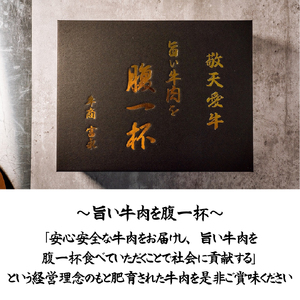 敬天愛牛
旨い牛肉を
腹一杯
～旨い牛肉を腹一杯～
「安心安全な牛肉をお届けし、旨い牛肉を
腹一杯食べていただくことで社会に貢献する」
という経営理念のもと肥育された牛肉を是非ご賞味ください